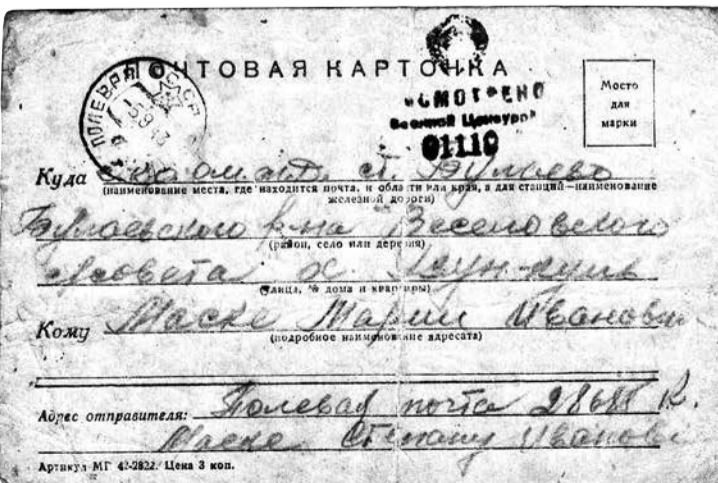 ПОЧТОВАЯ КАРТОЧКА
ПОЛЕВАЯ СССР
ПРОСМОТРЕНО
Военной Цензурой
01110
Место
для
марки
Куда ж.д. ст. Булаево
(наименование места, где находится почта, и области или края, а для станций—наименование
железной дороги)
Булаевского р-на Веселовского
(район, село или деревня)
с/совета х.
(улица, № дома и квартиры)
Кому Маске Марии Ивановн
(подробное наименование адресата)
Адрес отправителя: Полевая почта К.
Маске Степану Иванови
Артикул МГ 42-2822. Цена 3 коп.